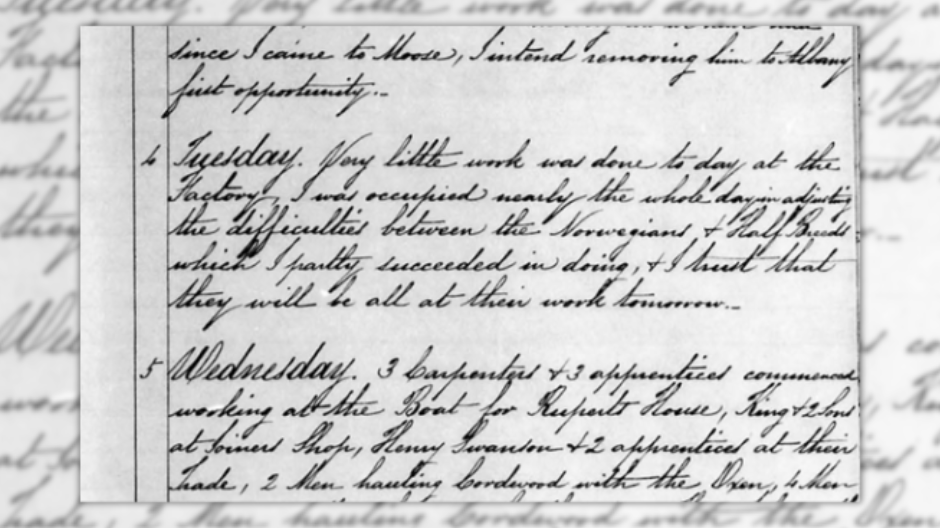 since I came to Moose, I intend removing him to Albany
first opportunity._
4 Tuesday. Very little work was done to day at the
Factory, I was occupied nearly the whole day in adjusting
the difficulties between the Norwegians & Half Breeds
which I partly succeeded in doing, & I trust that
they will be all at their work tomorrow._
5 Wednesday. 3 Carpenters & 3 apprentices commenced
working at the Boat for Ruperts House, King & 2 Sons
at Joiners Shop, Henry Swanson & 2 apprentices at their
trade, 2 Men hauling Cordwood with the Oxen, 4 Men